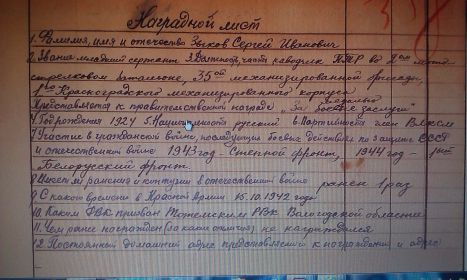 Наградной лист
1. Фамилия, имя и отчество Зыков Сергей Иванович
2. Звание младший сержант 3. Должность, часть наводчик ПТР во 2ом мото-
стрелковом батальоне, 35ой механизированной бригады
1го Красноградского механизированного корпуса
Представляется к правительственной награде медалью
"За боевые заслуги"
4. Год рождения 1924 5. Национальность русский 6. Партийность член ВЛКСМ
7. Участие в гражданской войне, последующих боевых действиях по защите СССР
и отечественной войне 1943 год - Степной фронт, 1944 год - 1ый
Белорусский фронт.
8. Имеет ли ранения и контузии в отечественной войне ранен 1 раз
9. С какого времени в Красной Армии 15.10.1942 года
10. Каким РВК призван Тотемским РВК Вологодской области
11. Чем ранее награжден (за какие отличия) не награждался
12. Постоянный домашний адрес представляемого к награждению и адрес